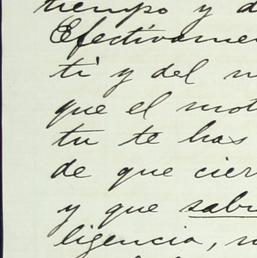 tiempo y d
Efectivame
ti y del m
que el mot
tu te has
de que cier
y que sabr
ligencia, n